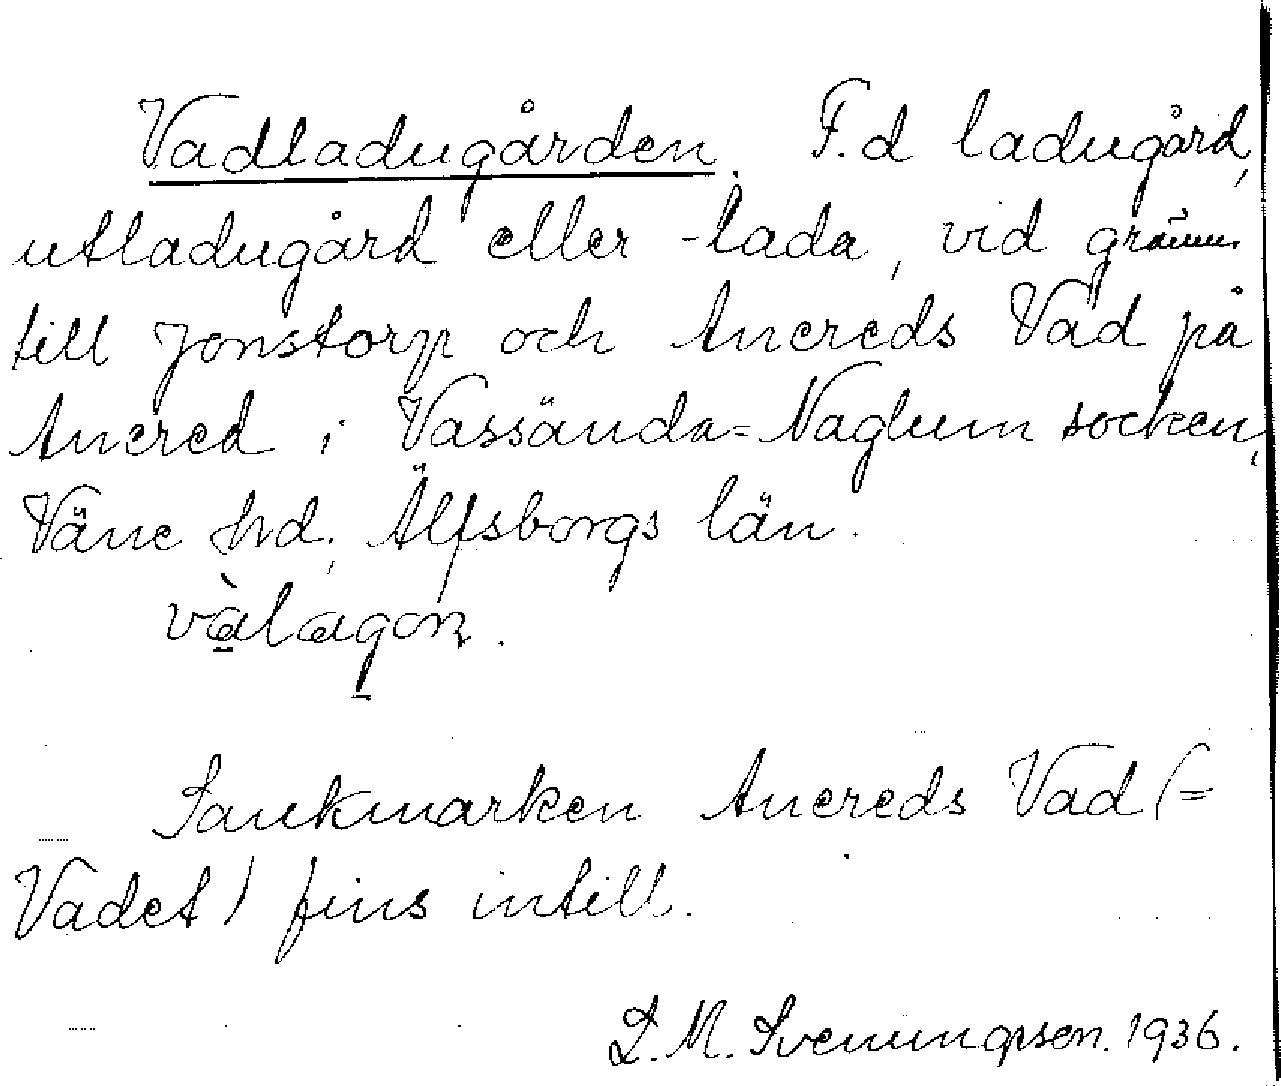 Vadladugården. F.d ladugård,
utladugård eller -lada, vid gränsen
till Jonstorp och Ancreds Vad på
Ancred i Vassända-Naglum socken,
Väne hd, Älfsborgs län.
vàlagon.
Sankmarken Ancreds Vad (=
Vadet) fins intill.
L.M. Svenungsson. 1936.